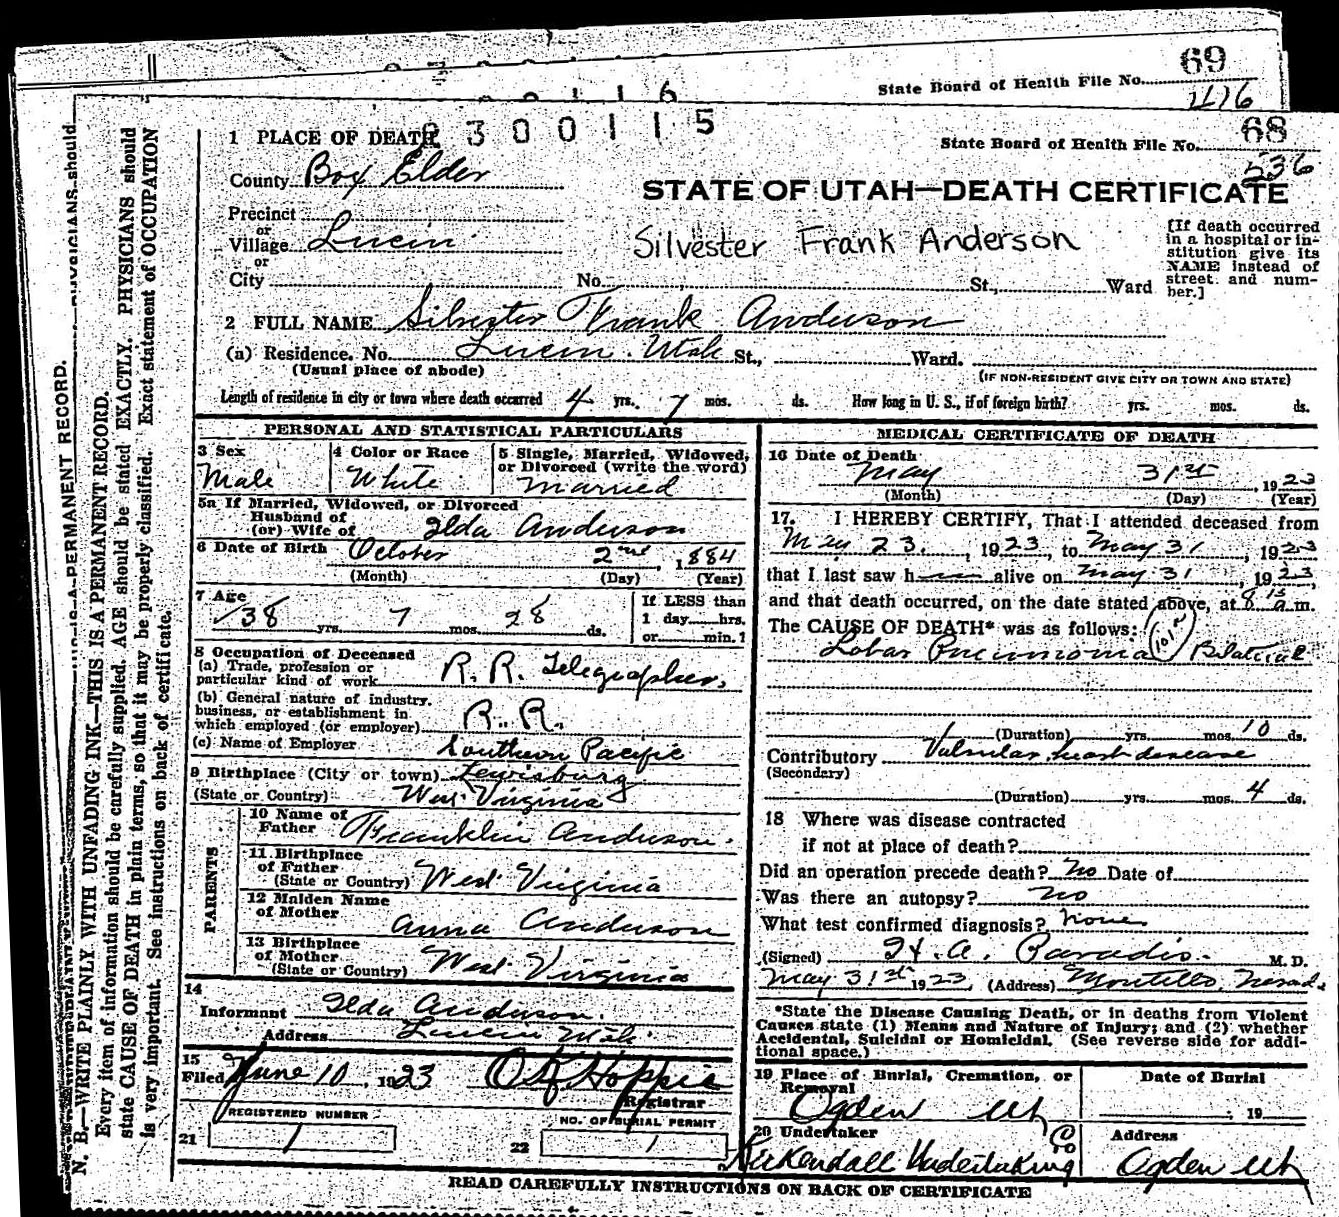 69
State Board of Health File No.
416
0 1 1 6
2300115
1 PLACE OF DEATH
68
State Board of Health File No.
536
County Box Elder
STATE OF UTAH—DEATH CERTIFICATE
Precinct
or
Village Lucin
or
City
Silvester Frank Anderson
No. St., Ward
[If death occurred
in a hospital or in-
stitution give its
NAME instead of
street and num-
ber.]
2 FULL NAME Silvester Frank Anderson
(a) Residence. No. Lucin Utah St., Ward.
(Usual place of abode)
(IF NON-RESIDENT GIVE CITY OR TOWN AND STATE)
Length of residence in city or town where death occurred 4 yrs. 7 mos. ds. How long in U. S., if of foreign birth? yrs. mos. ds.
PERSONAL AND STATISTICAL PARTICULARS
3 Sex
Male
4 Color or Race
White
5 Single, Married, Widowed,
or Divorced (write the word)
Married
5a If Married, Widowed, or Divorced
Husband of
(or) Wife of Ilda Anderson
6 Date of Birth October 2nd, 1884
(Month) (Day) (Year)
7 Age
38 yrs. 7 mos. 28 ds.
If LESS than
1 day hrs.
or min.?
8 Occupation of Deceased
(a) Trade, profession or
particular kind of work R. R. Telegrapher,
(b) General nature of industry,
business, or establishment in
which employed (or employer) R. R.
(c) Name of Employer Southern Pacific
9 Birthplace (City or town) Lewisburg
(State or Country) West Virginia
PARENTS
10 Name of
Father Franklin Anderson.
11 Birthplace
of Father
(State or Country) West Virginia
12 Maiden Name
of Mother Anna Anderson
13 Birthplace
of Mother
(State or Country) West Virginia
14
Informant Ilda Anderson.
Address Lucin Utah.
15
Filed June 10, 1923 Hoppie
Registrar
REGISTERED NUMBER
21 1
NO. OF BURIAL PERMIT
22 1
MEDICAL CERTIFICATE OF DEATH
16 Date of Death
May 31st, 1923
(Month) (Day) (Year)
17. I HEREBY CERTIFY, That I attended deceased from
May 23., 1923, to May 31, 1923
that I last saw h alive on May 31, 1923,
and that death occurred, on the date stated above, at 8 15 a.m.
The CAUSE OF DEATH* was as follows:
Lobar Pneumonia Bilateral
101
(Duration) yrs. mos. 10 ds.
Contributory Valvular heart disease
(Secondary)
(Duration) yrs. mos. 4 ds.
18 Where was disease contracted
if not at place of death?
Did an operation precede death? No Date of
Was there an autopsy? No
What test confirmed diagnosis? None
(Signed) H. A. Paradis. M. D.
May 31st 1923, (Address) Montello, Nevad.
*State the Disease Causing Death, or in deaths from Violent
Causes state (1) Means and Nature of Injury; and (2) whether
Accidental, Suicidal or Homicidal. (See reverse side for addi-
tional space.)
19 Place of Burial, Cremation, or
Removal
Ogden Ut
Date of Burial
, 19
20 Undertaker
Kirkendall Undertaking Co
Address
Ogden Ut
READ CAREFULLY INSTRUCTIONS ON BACK OF CERTIFICATE
N. B.—WRITE PLAINLY WITH UNFADING INK—THIS IS A PERMANENT RECORD.
Every item of information should be carefully supplied. AGE should be stated EXACTLY. PHYSICIANS should
state CAUSE OF DEATH in plain terms, so that it may be properly classified. Exact statement of OCCUPATION
is very important. See instructions on back of certificate.